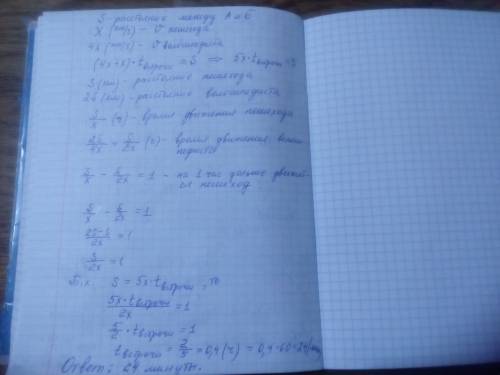 S - расстояние между А и Б
x (км/ч) - V пешехода
4x (км/ч) - V велосипедиста
(4x+x)·tвстречи = S ⇒ 5x·tвстречи = S
S (км) - расстояние пешехода
2S (км) - расстояние велосипедиста
S/x (ч) - время движения пешехода
2S/4x = S/2x (ч) - время движения велоси-
педиста
S/x - S/2x = 1 - на 1 час дольше
пешеход
S/x - S/2x = 1
2S-S/2x = 1
S/2x = 1
Т.к. S = 5x·tвстречи, то
5x·tвстречи/2x = 1
5/2·tвстречи = 1
tвстречи = 2/5 = 0,4 (ч) = 0,4·60 = 24 (мин)
Ответ: 24 минуты.